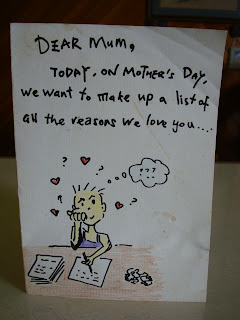 DEAR MUM,
TODAY, ON MOTHER'S DAY,
we want to make up a list of
all the reasons we love you....
? ? ?
? ? ?
? ?